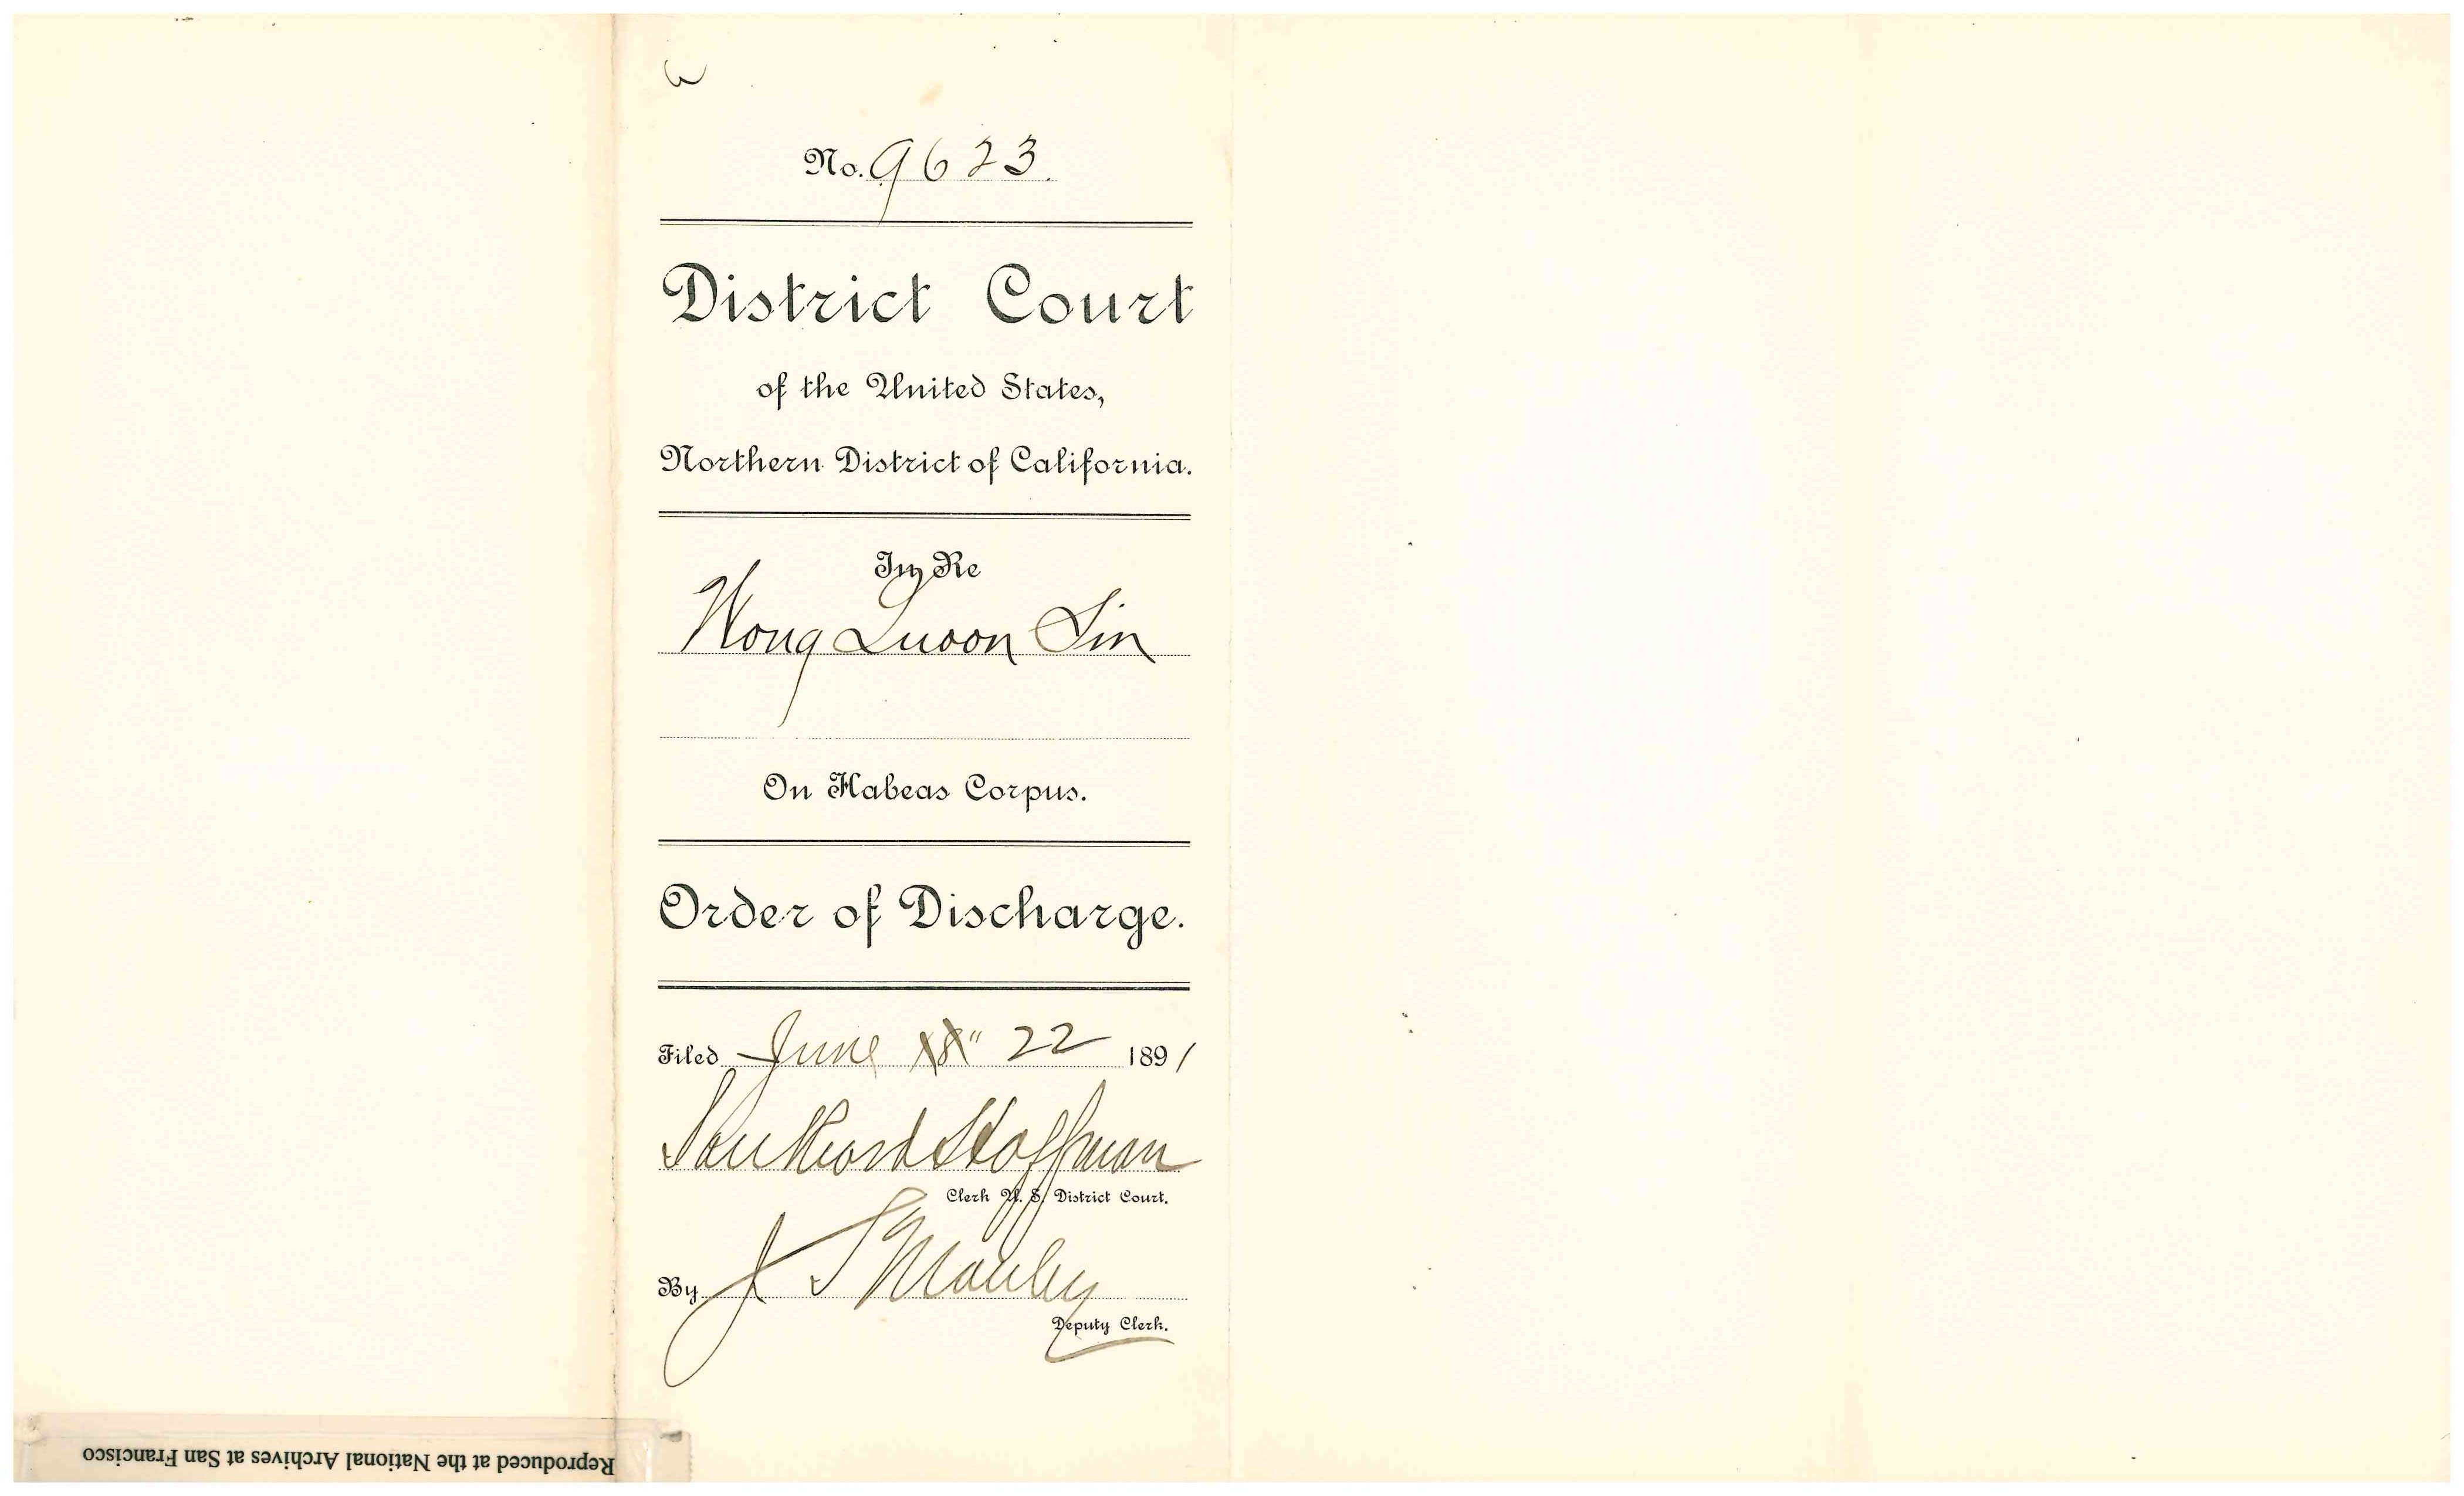 No. 9623.
District Court
of the United States,
Northern District of California.
In Re
Wong Luoon Sin
On Habeas Corpus.
Order of Discharge.
Filed June 18" 22 1891
Southard Hoffman
Clerk U. S. District Court.
By J S Manley
Deputy Clerk.
Reproduced at the National Archives at San Francisco